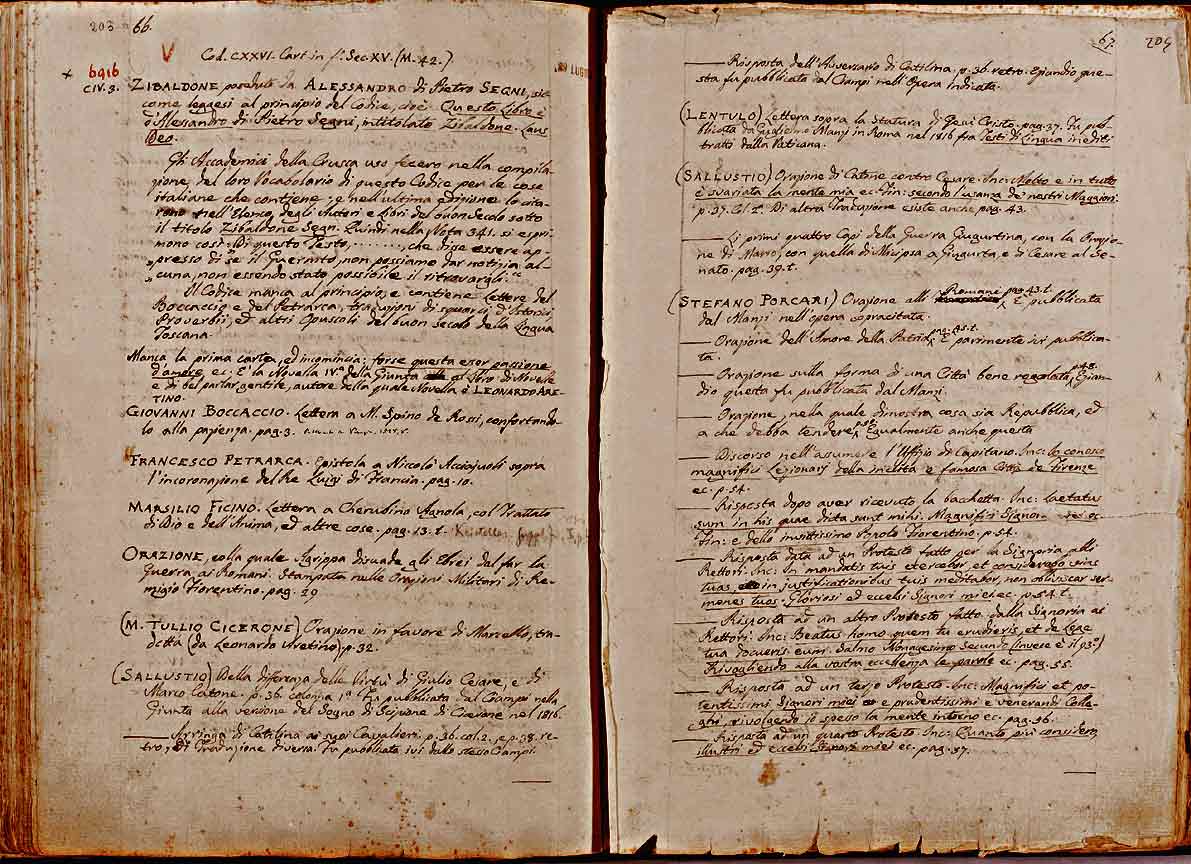 203 66.
V
Cod. CXXVI. Cart. in f. Sec. XV. (M. 42.)
+ 6916
CIV. 3.
ZIBALDONE posseduto da ALESSANDRO di Pietro SEGNI, sic
come leggesi al principio del Codice, cioè: Questo Libro è
d'Alessandro di Pietro Segni, intitolato Zibaldone. Laus
Deo.
Gli Accademici della Crusca uso fecero nella compila-
zione del loro Vocabolario di questo Codice per le cose
italiane che contiene; e nell'ultima edizione lo cita-
rono nell'Elenco degli Autori e Libri del buon secolo sotto
il titolo Zibaldone Segn. Quindi nella Nota 341. si espri-
mono così: Di questo Testo, ........, che disse essere ap-
„presso di se il Guernito, non possiamo dar notizia al-
„cuna, non essendo stato possibile il ritrovargli."
Il Codice manca al principio, e contiene Lettere del
Boccaccio e del Petrarca, traduzioni di squarci d'Istorici,
Proverbii, ed altri Opuscoli del buon secolo della Lingua
Toscana.
Manca la prima carta, ed incomincia: forse questa esser cagione
d'amore ec. E' la Novella IV.a della Giunta al Libro di Novelle
e di bel parlar gentile, autore della quale Novella è LEONARDO ARE-
TINO.
GIOVANNI BOCCACCIO. Lettera a M. Spino de Rossi, confortando-
lo alla pazienza. pag. 3.
FRANCESCO PETRARCA. Epistola a Niccolò Acciajuoli sopra
l'incoronazione del Re Luigi di Francia. pag. 10.
MARSILIO FICINO. Lettera a Cherubino Agnola, col Trattato
di Dio e dell'Anima, ed altre cose. pag. 13. t.
ORAZIONE, colla quale Agrippa disuade gli Ebrei dal far la
Guerra ai Romani. Stampata nelle Orazioni Militari di Re-
migio Fiorentino. pag. 29
(M. TULLIO CICERONE) Orazione in favore di Marcello, tra-
dotta (da Leonardo Aretino) p. 32.
(SALLUSTIO) Della differenza delle Virtù di Giulio Cesare, e di
Marco Catone. p. 36. colonna 1.a Fu pubblicata dal Ciampi nella
Giunta alla versione del Sogno di Scipione di Cicerone nel 1816.
—— Arringa di Catilina ai suoi Cavalieri. p. 36. col. 2., e p. 38. re-
tro, di Traduzione diversa. Fu pubblicata ivi dallo stesso Ciampi.
67. 204
—— Risposta dell'Aversario di Catilina. p. 36. retro. Eziandio que-
sta fu pubblicata dal Ciampi nell'Opera indicata.
(LENTULO) Lettera sopra la Statura di Gesù Cristo. pag. 37. Fu pub-
blicata da Guglielmo Manzi in Roma nel 1816 fra Testi di Lingua inediti
tratti dalla Vaticana.
(SALLUSTIO) Orazione di Catone contro Cesare. Inc: Molto e in tutto
è svariata la mente mia ec. Fin: secondo l'usanza de nostri Maggiori.
p. 37. Col 2.a Di altra Traduzione esiste anche, pag. 43.
—— Li primi quattro Capi della Guerra Giugurtina, con la Orazio-
ne di Mario, con quella di Micipsa a Giugurta, e di Cesare al Se-
nato. pag. 39. t.
(STEFANO PORCARI) Orazione alli Romani pag. 43. t. È pubblicata
dal Manzi nell'opera sopracitata.
—— Orazione dell'Amore della Patria. pag. 45. t. È parimente ivi pubblica-
ta.
—— Orazione sulla forma di una Città bene regolata, p. 48. Ezian-
dio questa fu pubblicata dal Manzi.
—— Orazione, nella quale dimostra cosa sia Repubblica, ed
a che debba tendere. Egualmente anche questa
—— Discorso nell'assumere l'Uffizio di Capitano. Inc: Io conosco
magnifici Legionary della inclita e famosa Città de Firenze
ec. p. 54.
—— Risposta dopo aver ricevuto la bacchetta. Inc: Laetatus
sum in his quae dicta sunt mihi. Magnifici Signori
Fin: e dello invittissimo Popolo Fiorentino. p. 54.
—— Risposta data ad un Protesto fatto per la Signoria alli
Rettori. Inc: In mandatis tuis exercebor, et considerabo vias
tuas, in justificationibus tuis meditabor, non obliviscar ser-
mones tuos. Gloriosi ed eccelsi Signori miei ec. p. 54. t.
—— Risposta ad un altro Protesto fatto dalla Signoria ai
Rettori: Inc: Beatus homo quem tu erudieris, et de Lege
tua docueris eum. Salmo Nonagesimo Secundo (invece è il 93.o)
Rivogliendo alla vostra eccellenza le parole ec. pag. 55.
—— Risposta ad un terzo Protesto. Inc: Magnifici et po-
tentissimi Signori miei e prudentissimi e venerandi Colle-
ghi, rivolgendo il spesso la mente intorno ec. pag. 56.
—— Risposta ad un quarto Protesto. Inc: Quanto più considero
illustri ed eccelsi Signori miei ec. pag. 57.